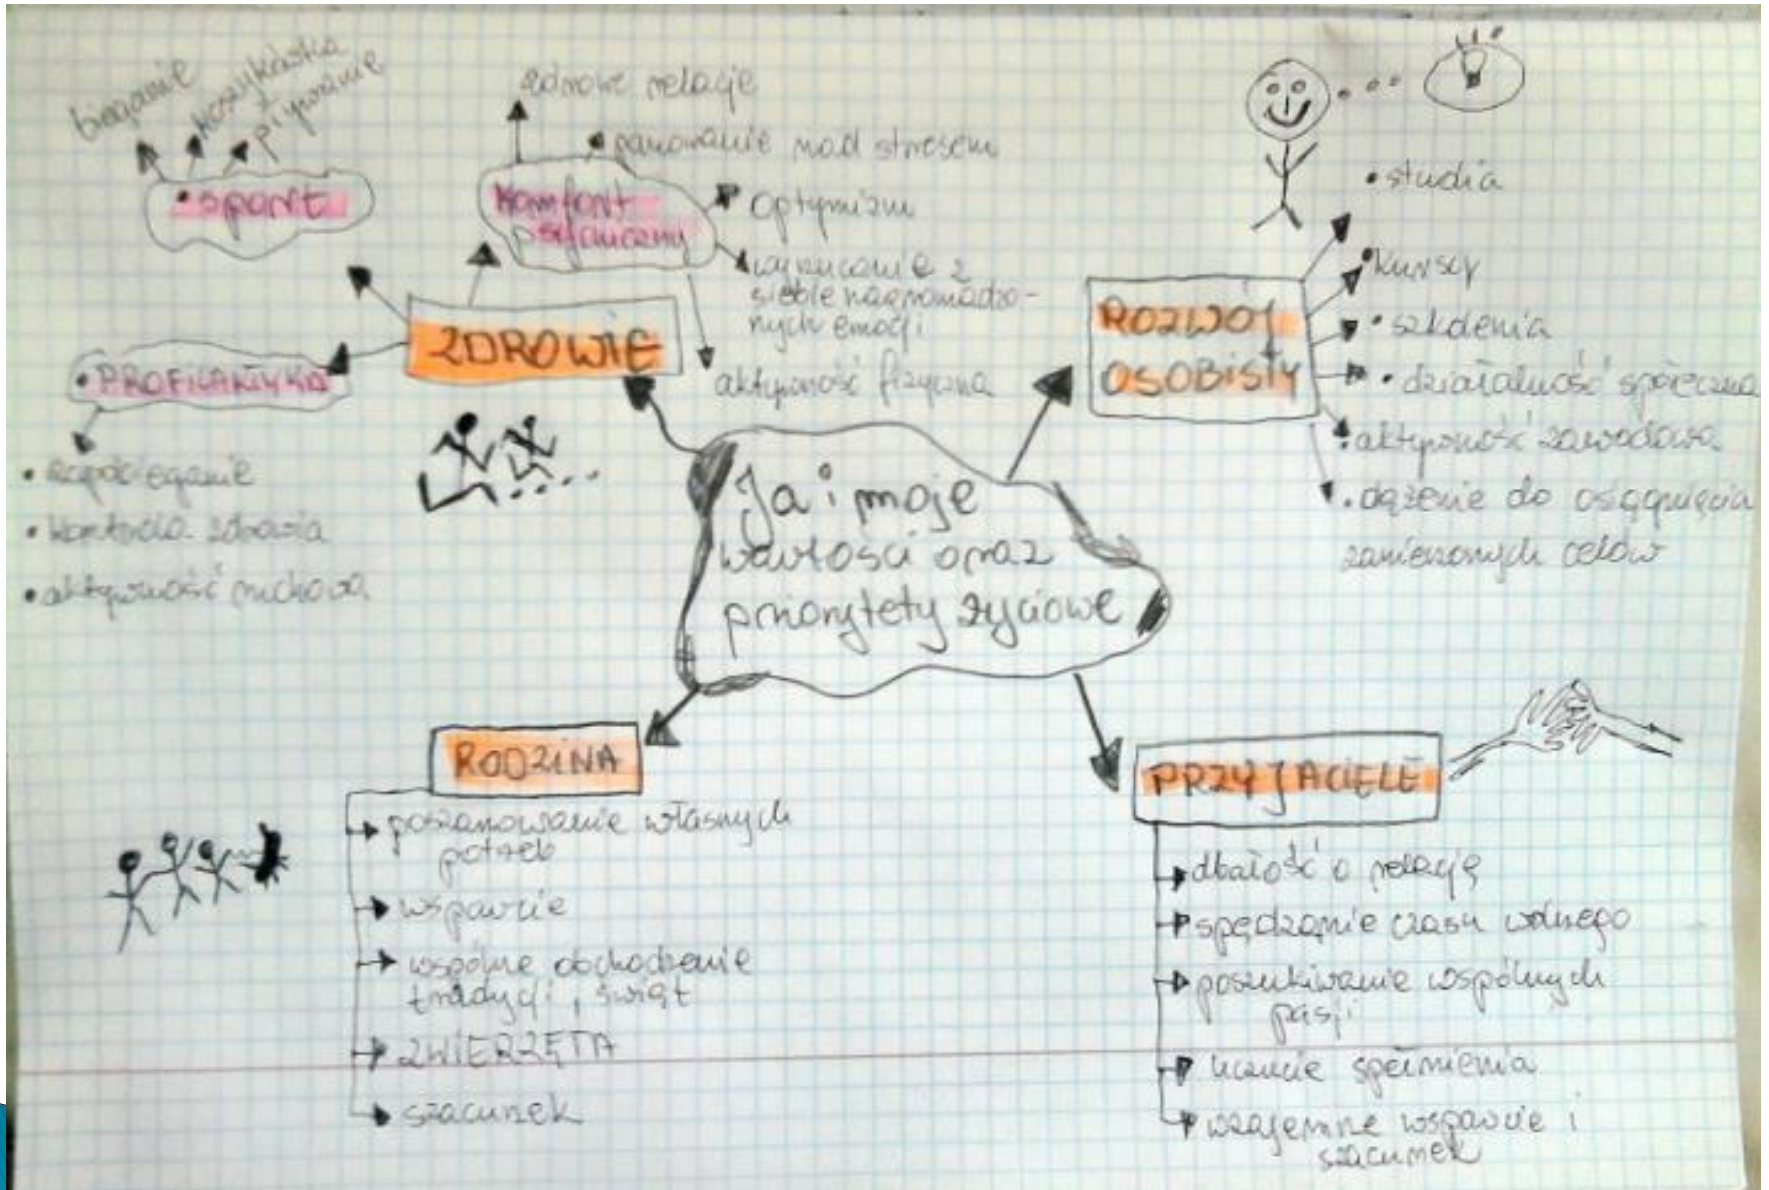 bieganie
koszykówka
pływanie
• sport
zdrowe relacje
panowanie nad stresem
Komfort
psychiczny
optymizm
wyrzucanie z
siebie nagromadzo-
nych emocji
aktywność fizyczna
ZDROWIE
• PROFILAKTYKA
• zapobieganie
• kontrola zdrowia
• aktywność ruchowa
• studia
• kursy
• szkolenia
• działalność społeczna
• aktywność zawodowa
• dążenie do osiągnięcia
zamierzonych celów
ROZWÓJ
OSOBISTY
Ja i moje
wartości oraz
priorytety życiowe
RODZINA
poszanowanie własnych
potrzeb
wsparcie
wspólne obchodzenie
tradycji, świąt
ZWIERZĘTA
szacunek
PRZYJACIELE
dbałość o relację
spędzanie czasu wolnego
poszukiwanie wspólnych
pasji
uczucie spełnienia
wzajemne wsparcie i
szacunek